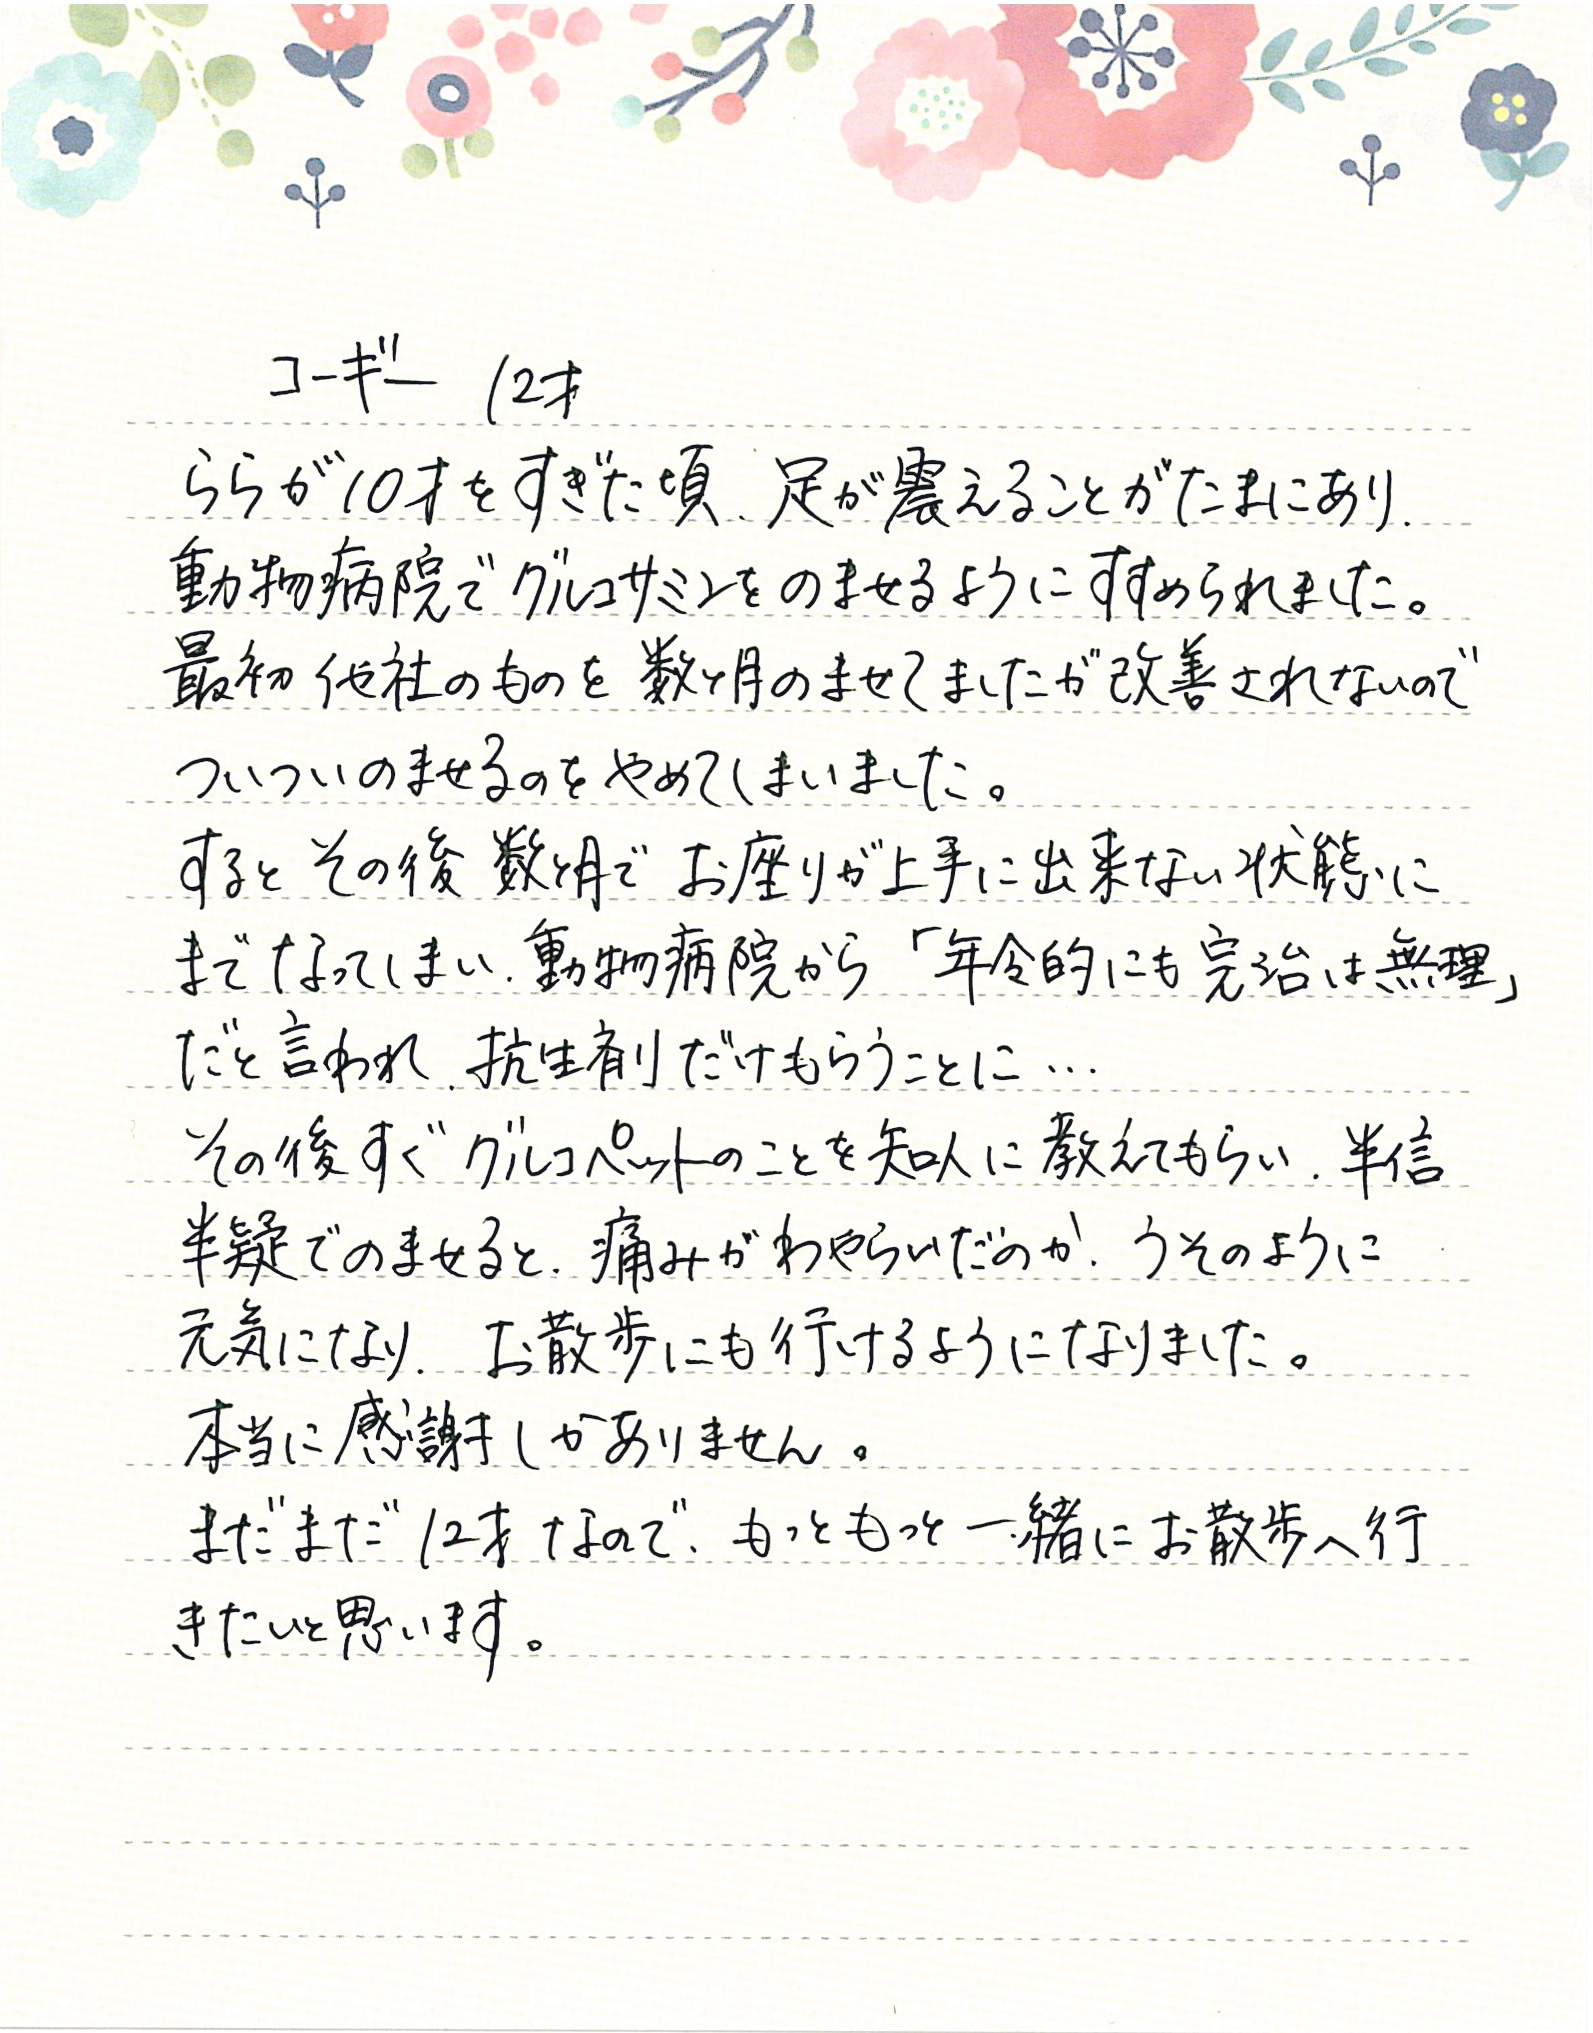 コーギー 12才
ららが10才をすぎた頃、足が震えることがたまにあり、
動物病院でグルコサミンをのませるようにすすめられました。
最初他社のものを数ヶ月のませてましたが改善されないので
ついついのませるのをやめてしまいました。
するとその後数ヶ月でお座りが上手に出来ない状態に
までなってしまい、動物病院から「年令的にも完治は無理」
だと言われ、抗生剤だけもらうことに…
その後すぐグルコペットのことを知人に教えてもらい、半信
半疑でのませると、痛みがわやらいだのか、うそのように
元気になり、お散歩にも行けるようになりました。
本当に感謝しかありません。
まだまだ12才なので、もっともっと一緒にお散歩へ行
きたいと思います。